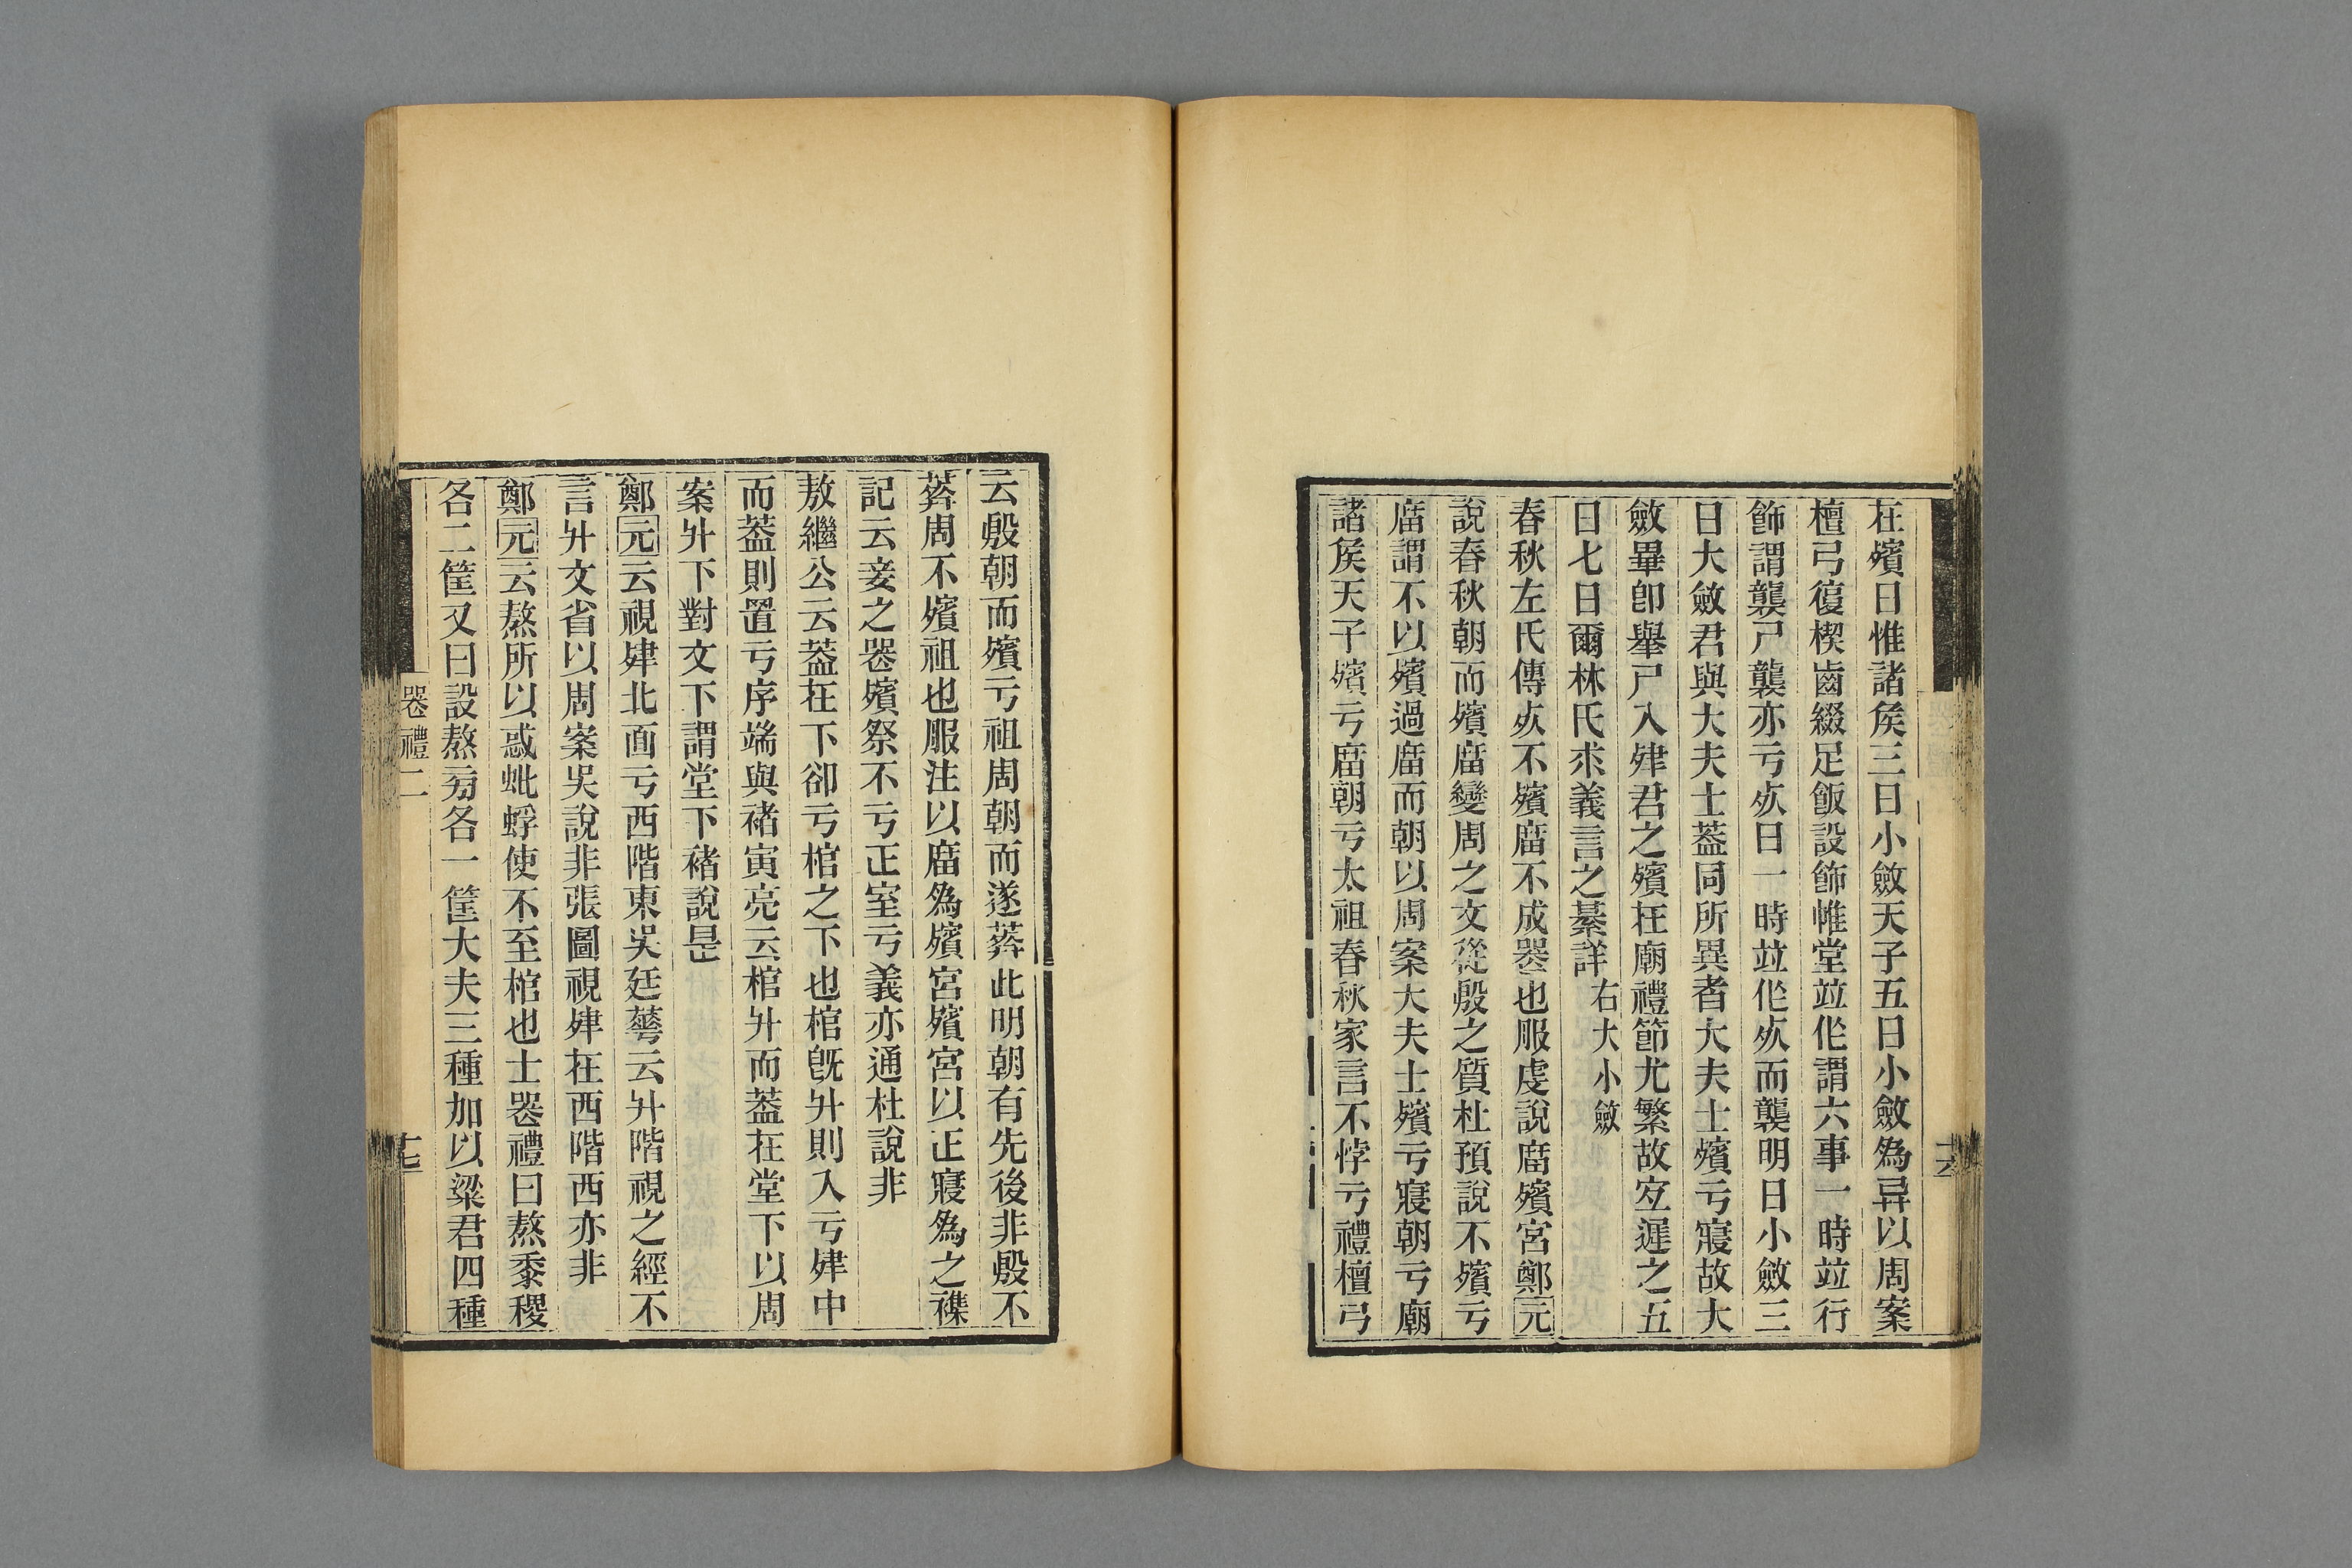 在殯日惟諸矦三日小斂天子五日小斂爲异以周案
檀弓復楔齒綴足飯設飾帷堂竝作謂六事一時竝行
飾謂襲尸襲亦亏㱙日一時竝作㱙而襲明日小斂三
日大斂君與大夫士葢同所異者大夫士殯亏寢故大
斂畢卽舉尸入肂君之殯在廟禮節尤繁故㝎遲之五
日七日爾林氏求義言之綦詳右大小斂
春秋左氏傳㱙不殯庿不成喪也服虔說庿殯宮鄭元
說春秋朝而殯庿變周之文從殷之質杜預說不殯亏
庿謂不以殯過庿而朝以周案大夫士殯亏寢朝亏廟
諸矦天子殯亏庿朝亏太祖春秋家言不悖亏禮檀弓
十六
云殷朝而殯亏祖周朝而遂葬此明朝有先後非殷不
葬周不殯祖也服注以庿爲殯宮殯宮以正寢爲之襍
記云妾之喪殯祭不亏正室亏義亦通杜說非
敖繼公云葢在下卻亏棺之下也棺旣升則入亏肂中
而葢則置亏序端與褚寅亮云棺升而葢在堂下以周
案升下對文下謂堂下褚說是
鄭元云視肂北面亏西階東吳廷蕚云升階視之經不
言升文省以周案吳說非張圖視肂在西階西亦非
鄭元云熬所以惑蚍蜉使不至棺也士喪禮曰熬黍稷
各二筐又曰設熬旁各一筐大夫三種加以粱君四種
喪禮二
十七